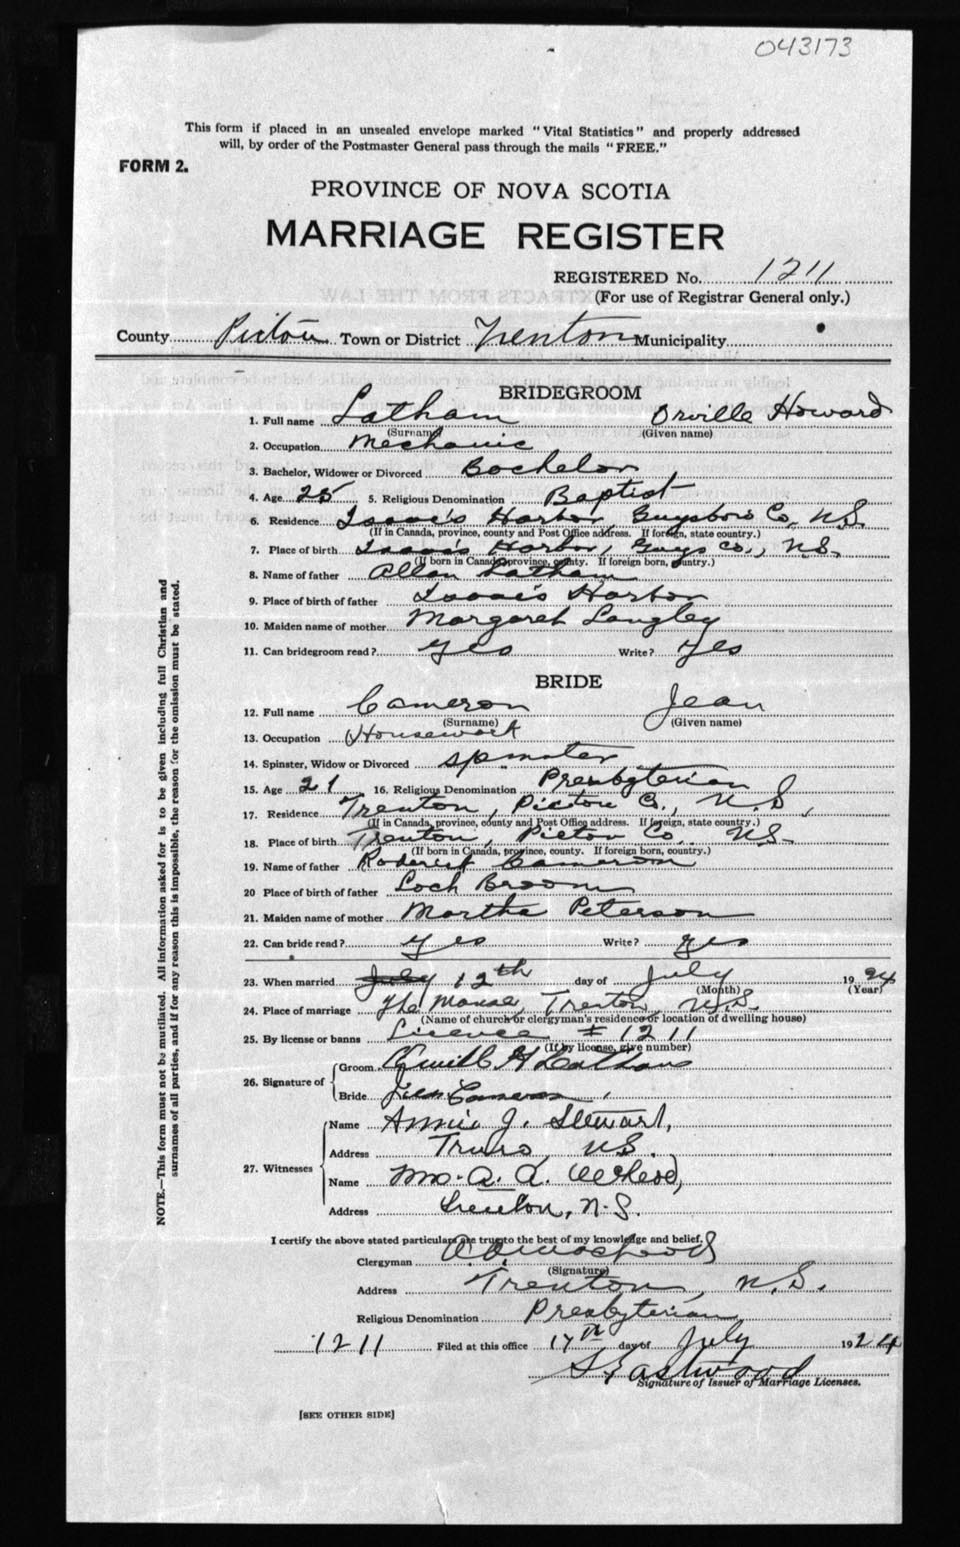 043173
This form if placed in an unsealed envelope marked "Vital Statistics" and properly addressed
will, by order of the Postmaster General pass through the mails "FREE."
FORM 2.
PROVINCE OF NOVA SCOTIA
MARRIAGE REGISTER
REGISTERED No. 1211
(For use of Registrar General only.)
County Pictou Town or District Trenton Municipality
BRIDEGROOM
1. Full name Latham Orville Howard
(Surname) (Given name)
2. Occupation Mechanic
3. Bachelor, Widower or Divorced Bachelor
4. Age 25 5. Religious Denomination Baptist
6. Residence Isaac's Harbor, Guysboro Co, N.S.
(If in Canada, province, county and Post Office address. If foreign, state country.)
7. Place of birth Isaac's Harbor, Guys Co., N.S.
(If born in Canada, province, county. If foreign born, country.)
8. Name of father Allan Latham
9. Place of birth of father Isaac's Harbor
10. Maiden name of mother Margaret Langley
11. Can bridegroom read? Yes Write? Yes
BRIDE
12. Full name Cameron Jean
(Surname) (Given name)
13. Occupation Housework
14. Spinster, Widow or Divorced Spinster
15. Age 21 16. Religious Denomination Presbyterian
17. Residence Trenton, Pictou Co., N.S.,
(If in Canada, province, county and Post Office address. If foreign, state country.)
18. Place of birth Trenton, Pictou Co., N.S.
(If born in Canada, province, county. If foreign born, country.)
19. Name of father Roderick Cameron
20 Place of birth of father Loch Broom
21. Maiden name of mother Martha Peterson
22. Can bride read? Yes Write? Yes
23. When married July 12th day of July 1924
(Month) (Year)
24. Place of marriage The Manse, Trenton, N.S.
(Name of church or clergyman's residence or location of dwelling house)
25. By license or banns Licence # 1211
(If by license, give number)
26. Signature of Groom Orville H Latham
Bride Jean Cameron
27. Witnesses
Name Annie J. Stewart,
Address Truro, N.S.
Name Mrs. A. A. McLeod,
Address Trenton, N.S.
I certify the above stated particulars are true to the best of my knowledge and belief.
Clergyman
(Signature)
Address Trenton, N.S.
Religious Denomination Presbyterian
1211 Filed at this office 17th day of July 1924
S. Eastwood
Signature of Issuer of Marriage Licenses.
[SEE OTHER SIDE]
NOTE.—This form must not be mutilated. All information asked for is to be given including full Christian and
surnames of all parties, and if for any reason this is impossible, the reason for the omission must be stated.